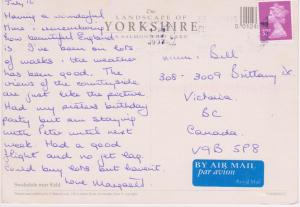 July 12
Having a wonderful
time: remembering
how beautiful England
is I've been on lots
of walks: the weather
has been good. The
views of the countryside
are just like the picture
Had my sisters birthday
party but am staying
with Peter until next
week. Had a good
flight and no jet lag.
Could buy lots but haven't.
Love Margaret
Swaledale near Keld
THE
LANDSCAPE OF
YORKSHIRE
Bell
308-3009 Brittany Dr.
Victoria
BC
Canada.
V9B 5P8
BY AIR MAIL
par avion
Royal Mail